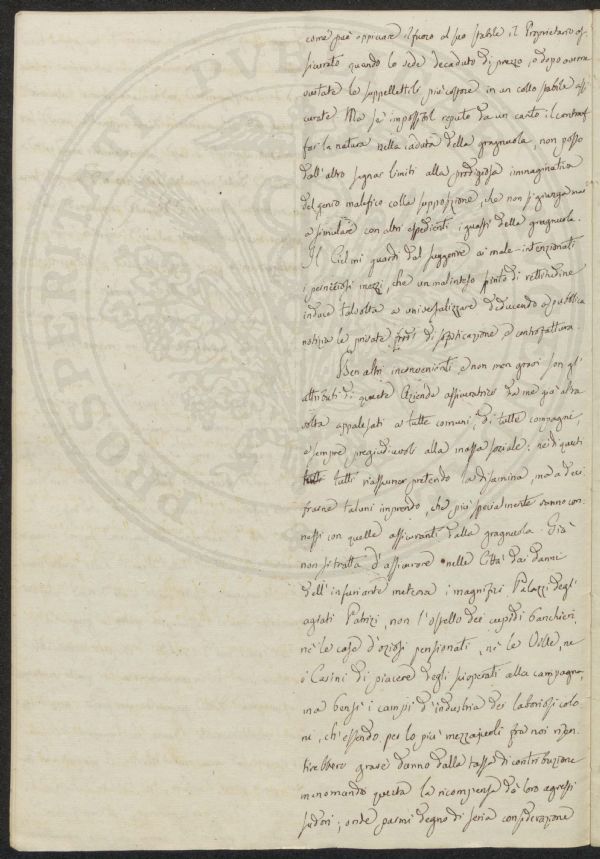 come può appiccare il fuoco al suo stabile il Proprietario as-
sicurato quando lo vede decaduto di prezzo, o dopo averne
vuotate le suppellettili più costose in un collo stabile assi-
curate. Ma se impossibil reputo da un canto il contraf-
far la natura nella caduta della gragnuola, non posso
dall'altro segnar limiti alla prodigiosa immaginativa
del genio malefico colla supposizione, che non si giunga mai
a simulare con altri espedienti i guasti della gragnuola.
Il Ciel mi guardi dal suggerire ai male-intenzionati
i perniciosi mezzi, che un malinteso spirito di rettitudine
induce talvolta a universalizzare deducendo a pubblica
notizia le private frodi di sofisticazione e contraffattura.
Ben altri inconvenienti, e non men gravi son gl'
attributi di queste Aziende assicuratrici da me già altra
volta appalesati a tutte comuni, di tutte compagne,
e sempre pregiudicevoli alla massa sociale; nè di questi
tutti riassumer pretendo la disamina, ma a deci-
frarne taluni imprendo, che più specialmente vanno con-
nessi con quelle assicuranti dalla gragnuola. Già
non si tratta d'assicurare nelle Città dai danni
dell'infuriante meteora i magnifici Palazzi degli
agiati Patrizj, non l'ostello dei cupidi banchieri,
nè le case d'oziosi pensionati, nè le Ville, ne
i Casini di piacere degli scioperati alla campagna,
ma bensì i campi d'industria dei laboriosi colo-
ni, ch'essendo per lo più mezzajuoli fra noi risen-
tirebbero grave danno dalla tassa di contribuzione
menomando questa la ricompensa de' loro agresti
sudori; onde parmi degno di seria considerazione